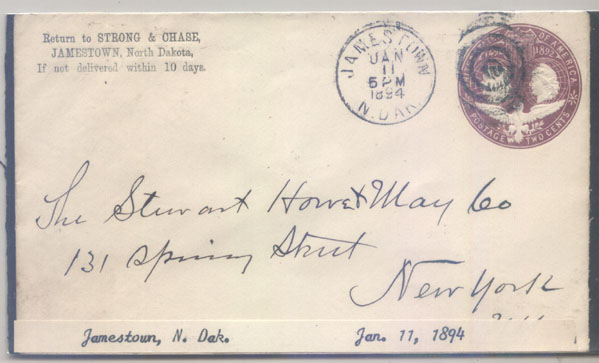 Return to STRONG & CHASE,
JAMESTOWN, North Dakota,
If not delivered within 10 days.
JAMESTOWN
JAN
11
5 PM
1894
N. DAK.
OF AMERICA
1892
POSTAGE TWO CENTS
The Stewart Howe & May Co
131 Spring Street
New York
Jamestown, N. Dak. Jan. 11, 1894